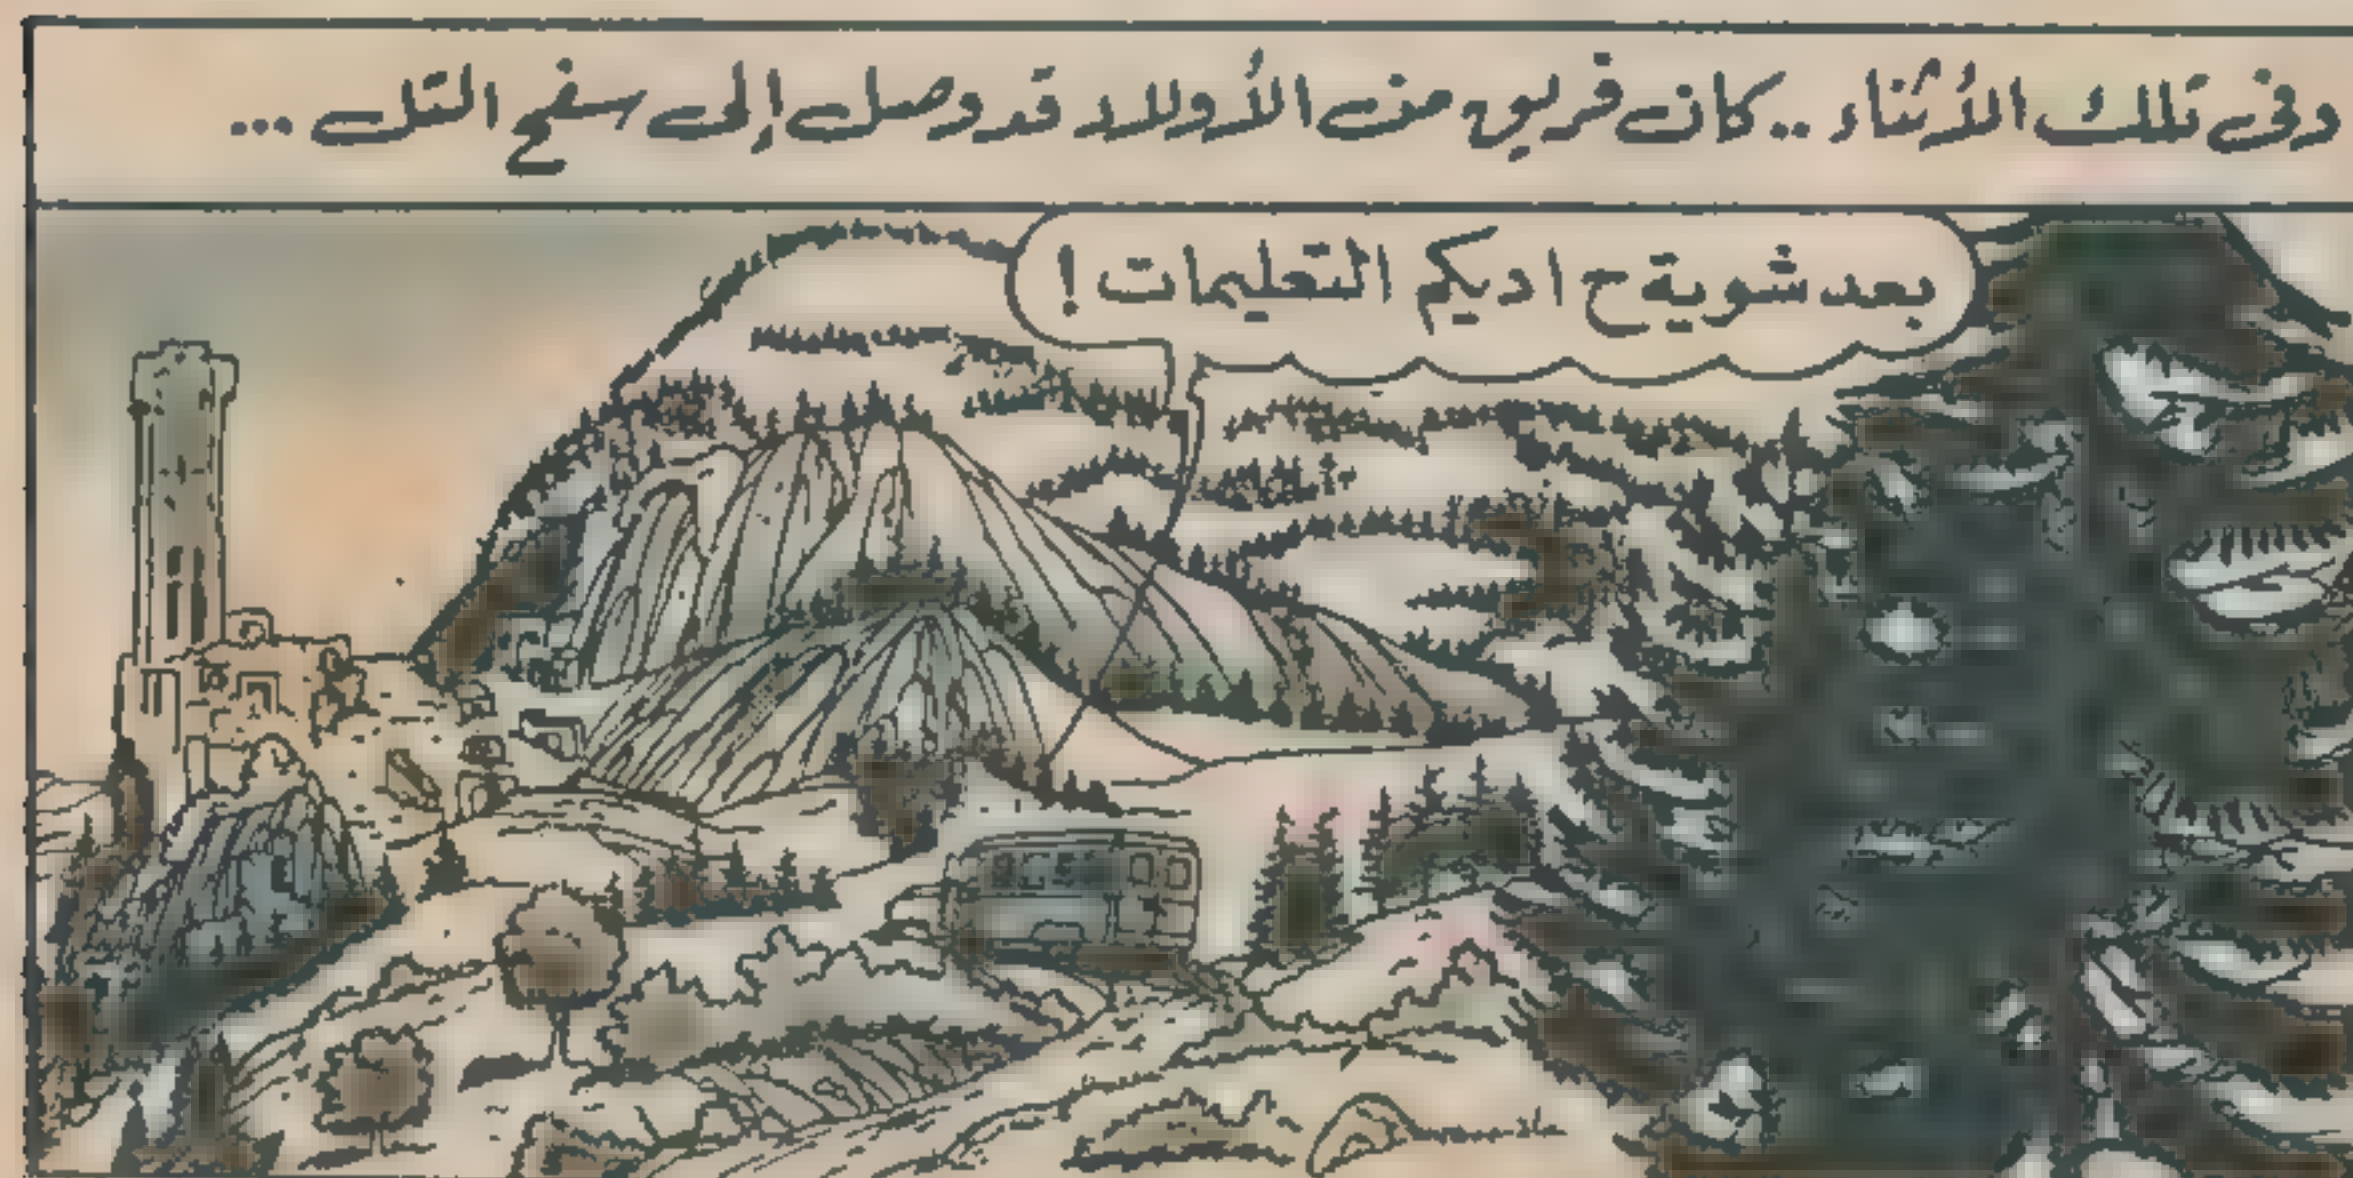 وفى تلك الأثناء .. كان فريق من الأولاد قد وصل إلى سفح التل ...
بعد شوية ح اديكم التعليمات !